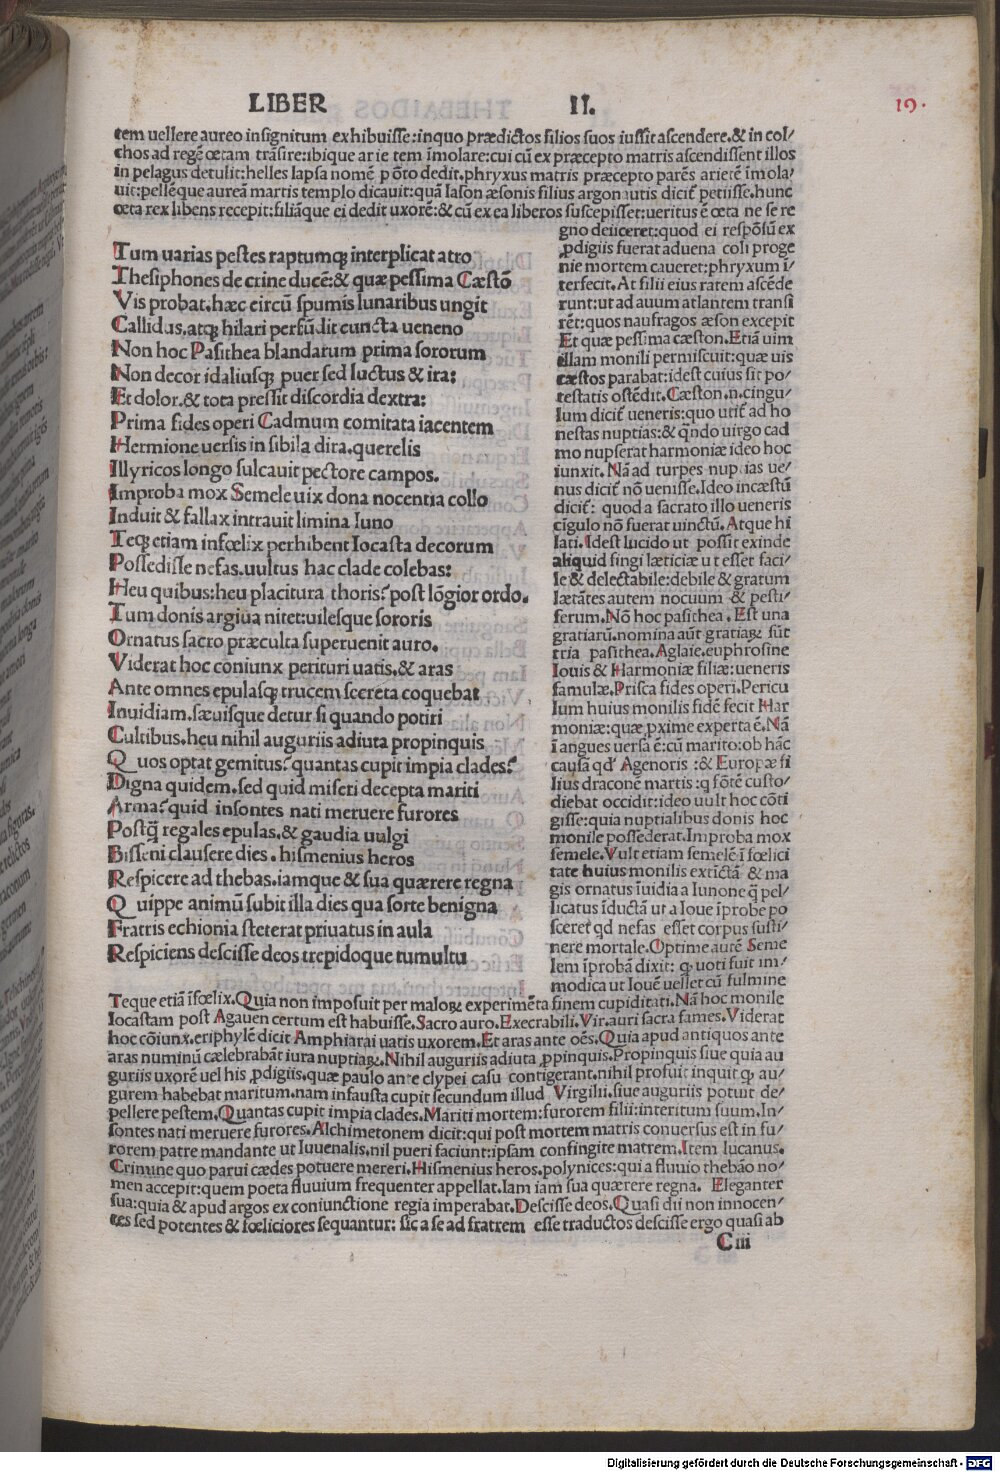 LIBER II. 19.
tem uellere aureo insignitum exhibuisse:inquo prædictos filios suos iussit ascendere.& in col/
chos ad regē œtam trāsire:ibique arietem īmolare:cui cū ex præcepto matris ascendissent illos
in pelagus detulit:helles lapsa nomē pōto dedit.phryxus matris præcepto parēs arietē īmola/
uit:pellēque aureā martis templo dicauit:quā Iason æsonis filius argonautis dicit̃ petiisse.hunc
œta rex libens recepit:filiāque ei dedit uxorē:& cū ex ea liberos suscepisset:ueritus ē œta ne se re
Tum uarias pestes raptumqꝫ interplicat atro
Thesiphones de crine ducē:& quæ pessima Cæstō
Vis probat.hæc circū spumis lunaribus ungit
Callidus.atqꝫ hilari perfūdit cuncta ueneno
Non hoc Pasithea blandarum prima sororum
Non decor idaliusqꝫ puer sed luctus & ira:
Et dolor.& tota pressit discordia dextra:
Prima fides operi Cadmum comitata iacentem
Hermione uersis in sibila dira.querelis
Illyricos longo sulcauit pectore campos.
Improba mox Semele uix dona nocentia collo
Induit & fallax intrauit limina Iuno
Teqꝫ etiam infœlix perhibent Iocasta decorum
Possedisse nefas.uultus hac clade colebas:
Heu quibus:heu placitura thoris?post lōgior ordo.
Tum donis argiua nitet:uilesque sororis
Ornatus sacro præculta superuenit auro.
Viderat hoc coniunx perituri uatis.& aras
Ante omnes epulasqꝫ trucem secreta coquebat
Inuidiam.sæuisque detur si quando potiri
Cultibus.heu nihil auguriis adiuta propinquis
Quos optat gemitus?quantas cupit impia clades?
Digna quidem.sed quid miseri decepta mariti
Arma?quid insontes nati meruere furores
Postq̄ regales epulas.& gaudia uulgi
Bisseni clausere dies.hismenius heros
Respicere ad thebas.iamque & sua quærere regna
Quippe animū subit illa dies qua sorte benigna
Fratris echionia steterat priuatus in aula
Respiciens descisse deos trepidoque tumultu
gno deiiceret:quod ei respōsū ex
ꝓdigiis fuerat aduena coli proge
nie mortem caueret:phryxum ī/
terfecit.At filii eius ratem ascēde
runt:ut ad auum atlantem transi
rēt:quos naufragos æson excepit
Et quæ pessima cæston.Etiā uim
illam monili permiscuit:quæ uis
cæstos parabat:idest cuius sit po/
testatis ostēdit.Cæston.n.cingu/
lum dicit̃ ueneris:quo utit̃ ad ho
nestas nuptias:& qn̄do uirgo cad
mo nupserat harmoniæ ideo hoc
iunxit.Nā ad turpes nuptias ue/
nus dicit̃ nō uenisse.Ideo incæstū
dicit̃: quod a sacrato illo ueneris
cīgulo nō fuerat uinctū.Atque hi
lati.Idest lucido ut possit exinde
aliquid fingi læticiæ ut esset faci/
le & delectabile:debile & gratum
lætātes autem nocuum & pesti/
ferum.Nō hoc pasithea.Est una
gratiarū.nomina aūt gratiaꝝ sūt
tria pasithea.Aglaie.euphrosine
Iouis & Harmoniæ filiæ:ueneris
famulæ.Prisca fides operi.Pericu
lum huius monilis fidē fecit Har
moniæ:quæ ꝓxime experta ē.Nā
ī angues uersa ē:cū marito:ob hāc
causā qd̄ Agenoris :& Europæ fi
lius draconē martis :q fōtē custo/
diebat occidit:ideo uult hoc cōti
gisse:quia nuptialibus donis hoc
monile possederat.Improba mox
semele.Vult etiam semelē ī fœlici
tate huius monilis extīctā & ma
gis ornatus īuidia a Iunone q̄ pel/
licatus īductā ut a Ioue īprobe po
sceret qd̄ nefas esset corpus susti/
nere mortale.Optime autē Seme
lem īprobā dixit: qꝫ uoti fuit im/
modica ut Iouē uellet cū fulmine
Teque etiā īfœlix.Quia non imposuit per maloꝝ experimēta finem cupiditati.Nā hoc monile
Iocastam post Agauen certum est habuisse.Sacro auro.Execrabili.Vir.auri sacra fames.Viderat
hoc cōiunx.eriphylē dicit Amphiarai uatis uxorem.Et aras ante oēs.Quia apud antiquos ante
aras numinū cælebrabāt̃ iura nuptiaꝝ.Nihil auguriis adiuta ꝓpinquis.Propinquis siue quia au
guriis uxorē uel his ꝓdigiis.quæ paulo ante clypei casu contigerant.nihil profuit inquit qꝫ au/
gurem habebat maritum.nam infausta cupit secundum illud Virgilii.siue auguriis potuit de/
pellere pestem.Quantas cupit impia clades.Mariti mortem:furorem filii:interitum suum.In/
sontes nati meruere furores.Alchimetonem dicit:qui post mortem matris conuersus est in fu/
rorem patre mandante ut Iuuenalis.nil pueri faciunt:ipsam confingite matrem.Item lucanus.
Crimine quo parui cædes potuere mereri.Hismenius heros.polynices:qui a fluuio thebāo no/
men accepit:quem poeta fluuium frequenter appellat.Iam iam sua quærere regna. Eleganter
sua:quia & apud argos ex coniunctione regia imperabat.Descisse deos.Quasi dii non innocen/
tes sed potentes & fœliciores sequantur: sic a se ad fratrem esse traductos descisse ergo quasi ab
C iii
Digitalisierung gefördert durch die Deutsche Forschungsgemeinschaft - DFG